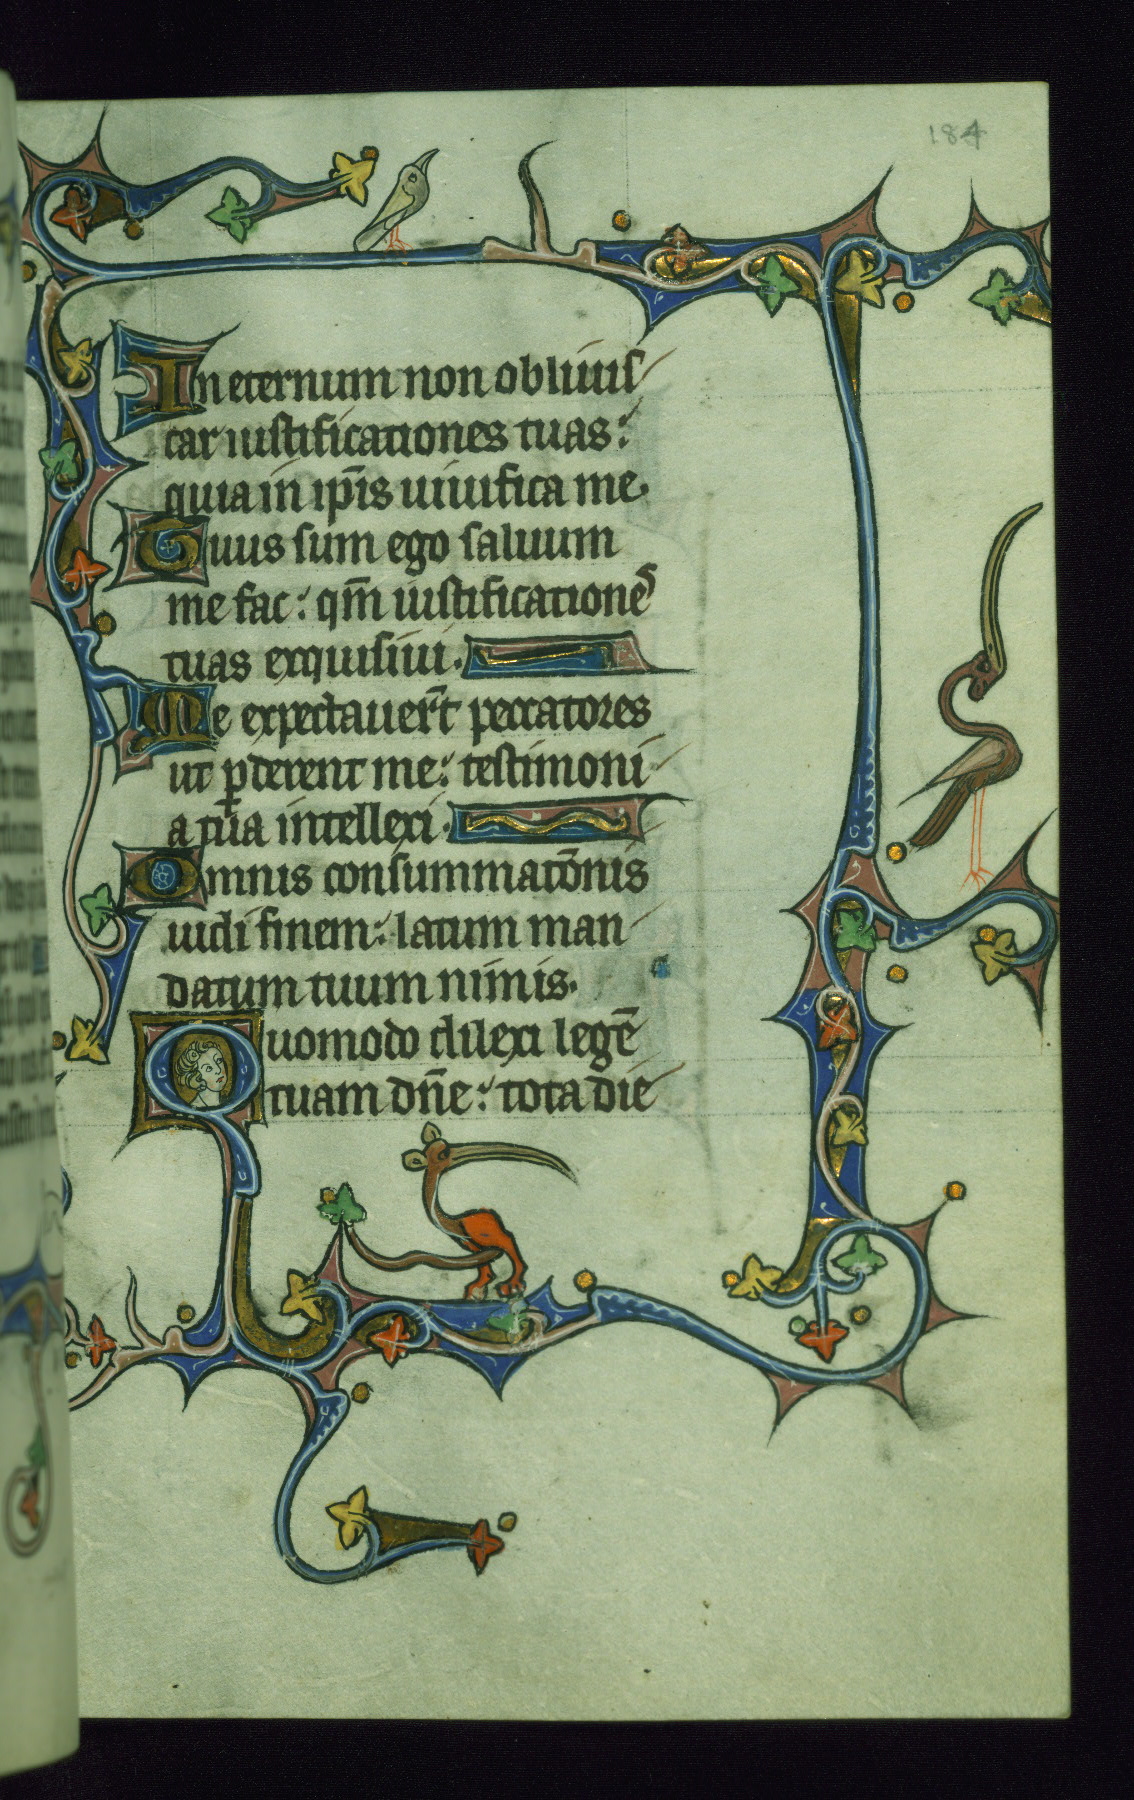 184
In eternum non obliuis
car iustificationes tuas:
quia in ip̄is uiuifica me.
Tuus sum ego saluum
me fac: qm̄ iustificatione s
tuas exquisiui.
Me expectauer̄t peccatores
ut ꝑderent me: testimoni
a tua intellexi.
Omnis consummatōnis
uidi finem: latum man
datum tuum nimis.
Quomodo dilexi legē
tuam dn̄e: tota die